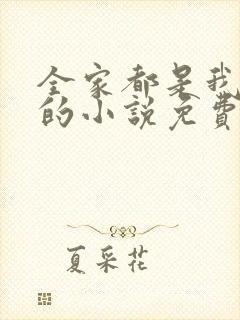 全家都是我
的小說免費
夏采花